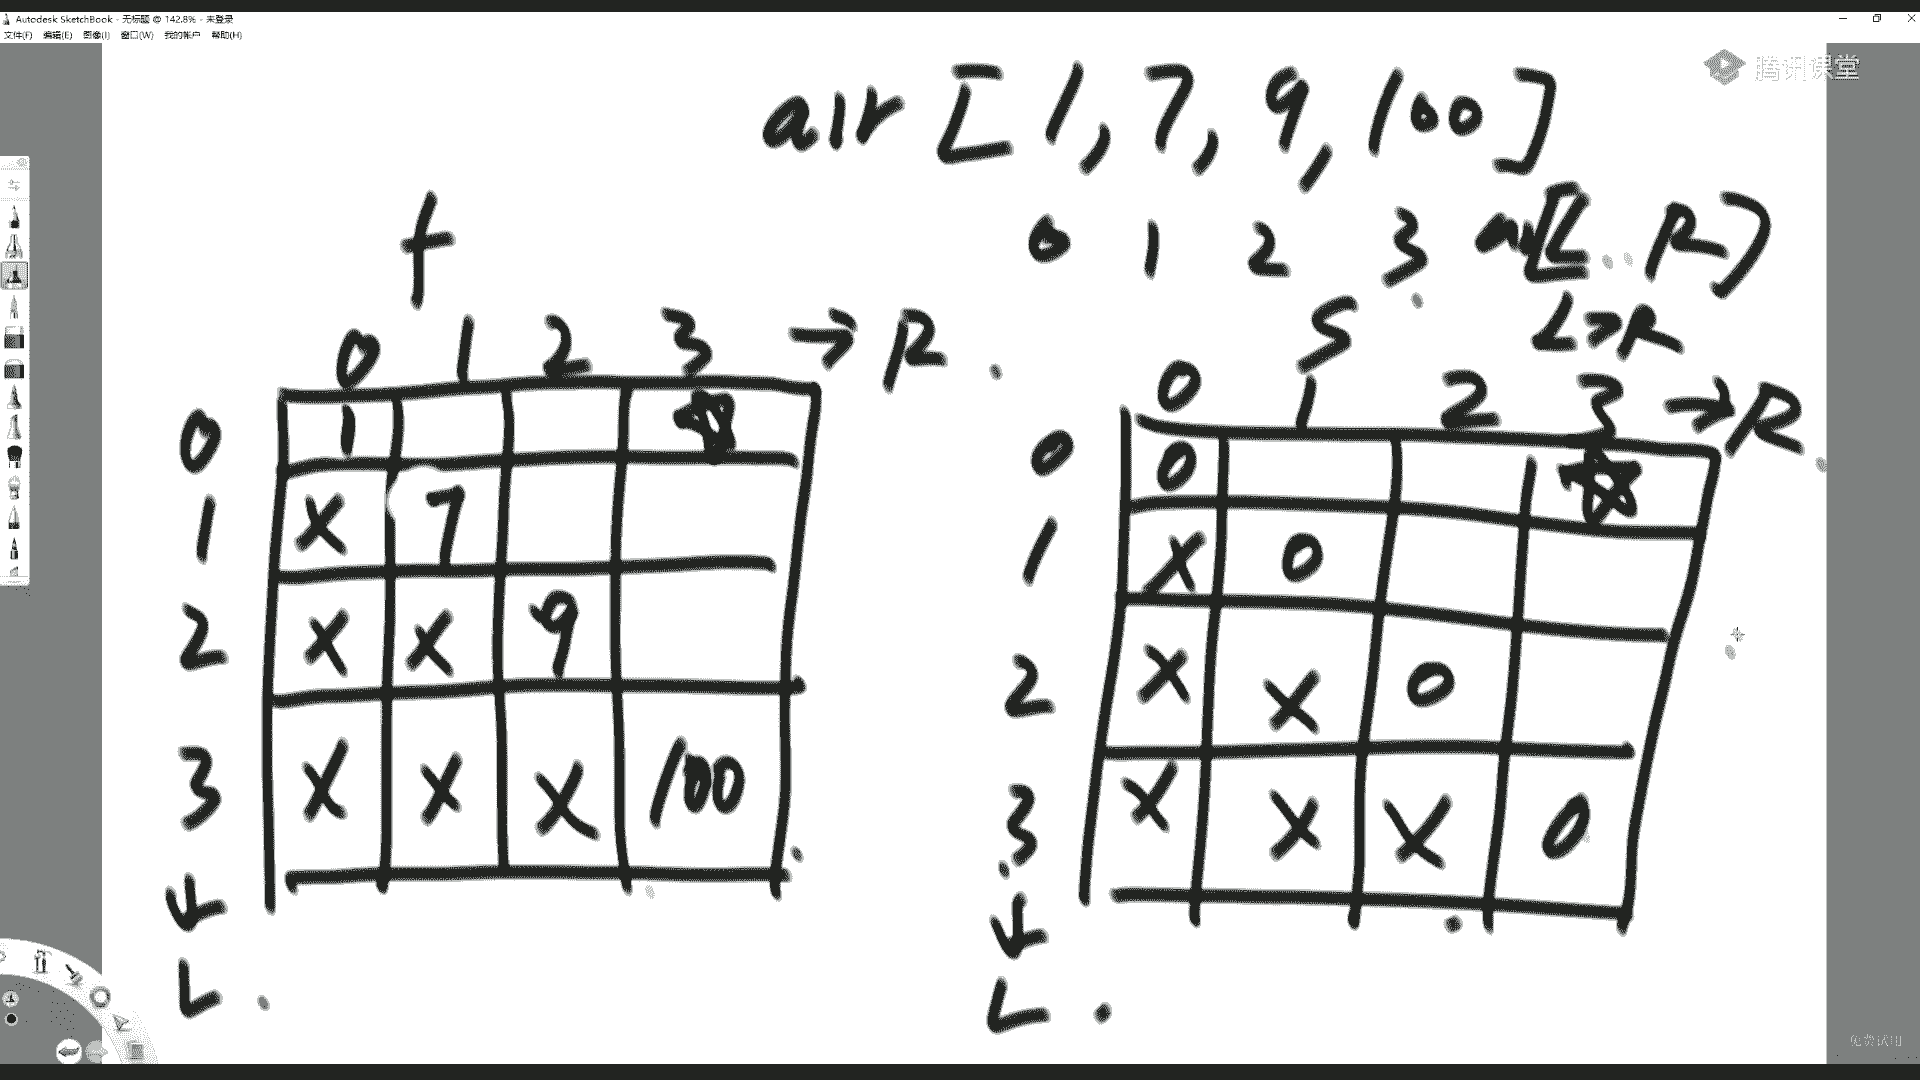 Autodesk SketchBook - 无标题 @ 142.8% - 未登录
文件(F) 编辑(E) 图像(I) 窗口(W) 我的帐户 帮助(H)
腾讯课堂
arr [1, 7, 9, 100]
0 1 2 3
arr[L..R]
L>R
f
0 1 2 3 → R.
0 1
1 X 7
2 X X 9
3 X X X 100
↓
L.
S
0 1 2 3 → R
0 0
1 X 0
2 X X 0
3 X X X 0
↓
L.
免费试用